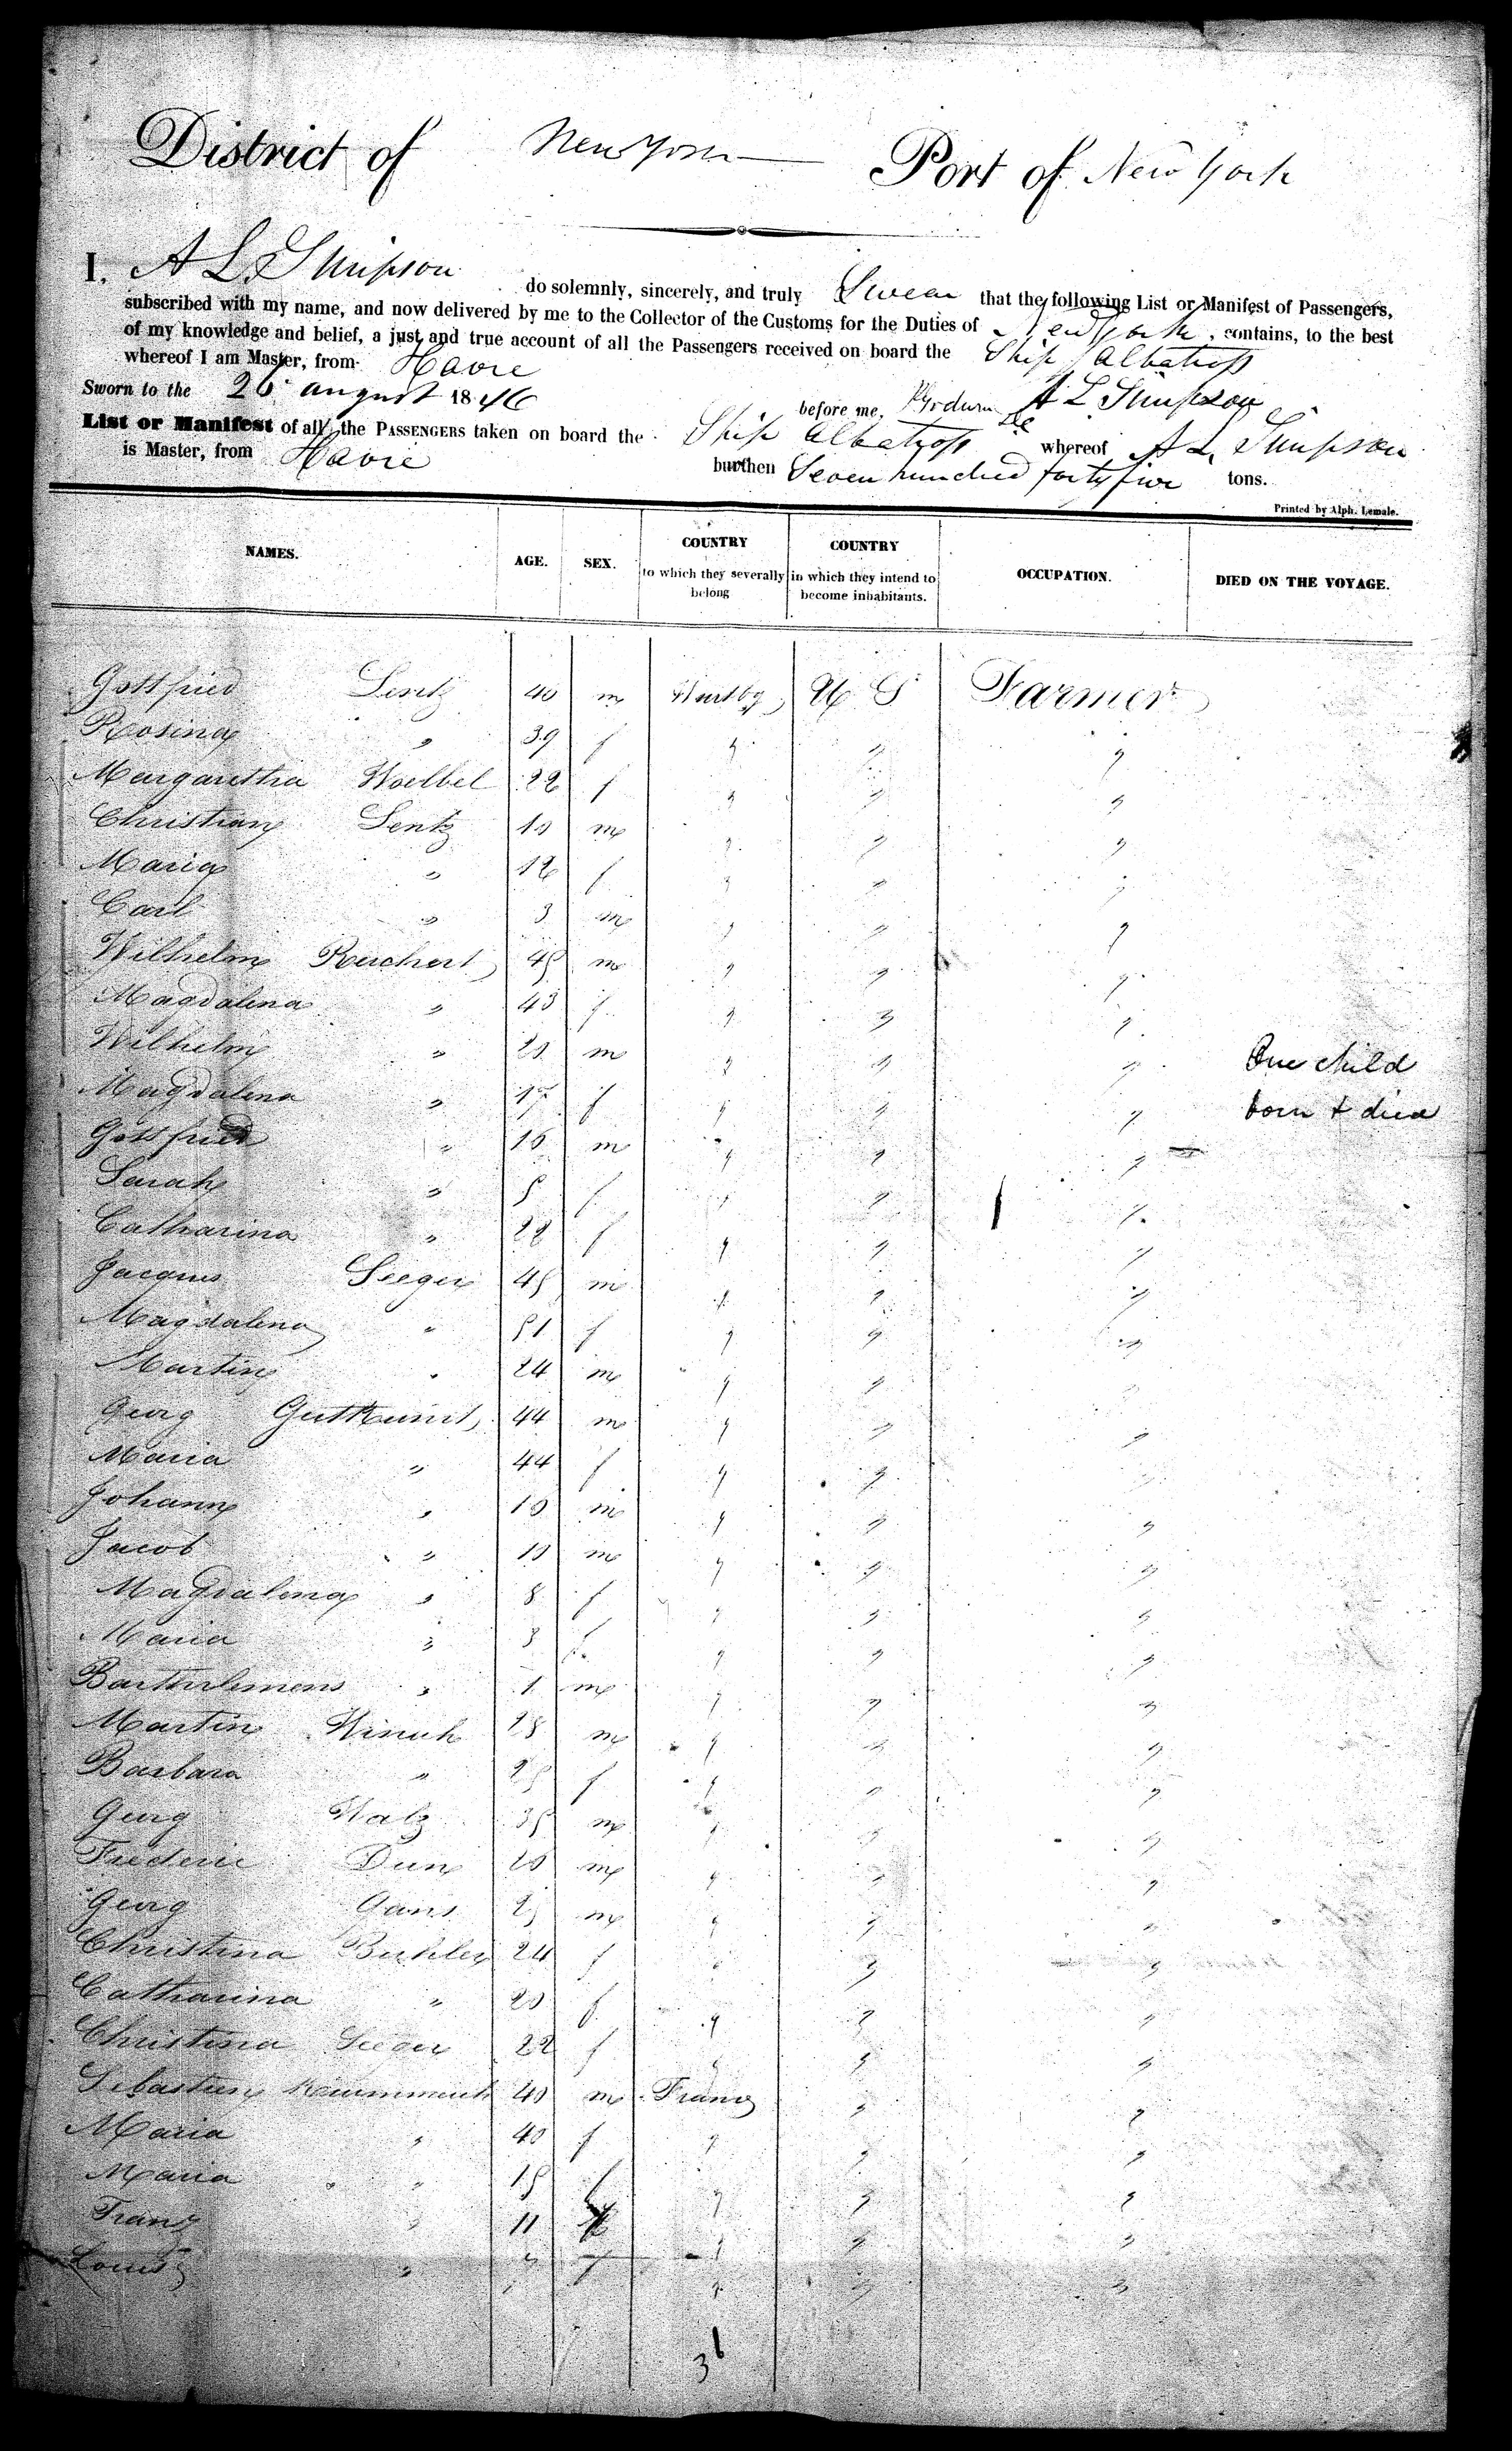 District of New York Port of New York
I, A L Simpson do solemnly, sincerely, and truly Swear that the following List or Manifest of Passengers,
subscribed with my name, and now delivered by me to the Collector of the Customs for the Duties of New York, contains, to the best
of my knowledge and belief, a just and true account of all the Passengers received on board the Ship Albatross
whereof I am Master, from Havre
Sworn to the 26 august 1846 before me, A L Simpson
List or Manifest of all the PASSENGERS taken on board the Ship Albatross whereof A L Simpson
is Master, from Havre burthen Seven hundred forty five tons.
Printed by Alph. Lemale.
NAMES. AGE. SEX. COUNTRY to which they severally belong COUNTRY in which they intend to become inhabitants. OCCUPATION. DIED ON THE VOYAGE.
Gottfried Lentz 40 m U S Farmer
Rosina " 39 f " " "
Margaretha Woelbel 22 f " " "
Christian Lentz 10 m " " "
Maria " 12 f " " "
Carl " 3 m " " "
Wilhelm Reichert 45 m " " "
Magdalena " 43 f " " "
Wilhelm " 20 m " " " One child
Magdalena " 17 f " " " born & died
Gottfried " 16 m " " "
Sarah " 5 f " " "
Catharina " 22 f " " "
Jacques Seeger 45 m " " "
Magdalena " 51 f " " "
Martin " 24 m " " "
Georg Gutkunst 44 m " " "
Maria " 44 f " " "
Johann " 10 m " " "
Jacob " 10 m " " "
Magdalena " 8 f " " "
Maria " 3 f " " "
Bartholomeus " 1 m " " "
Martin 28 m " " "
Barbara " 25 f " " "
Georg Walz 35 m " " "
Frederic Dun 20 m " " "
Georg Gans m " " "
Christina Buhler 24 f " " "
Catharina " 20 f " " "
Christina Seeger 22 f " " "
Sebastian 40 m France " "
Maria " 40 f " " "
Maria " 15 f " " "
Franz " 11 " " "
Louis " " " "
36